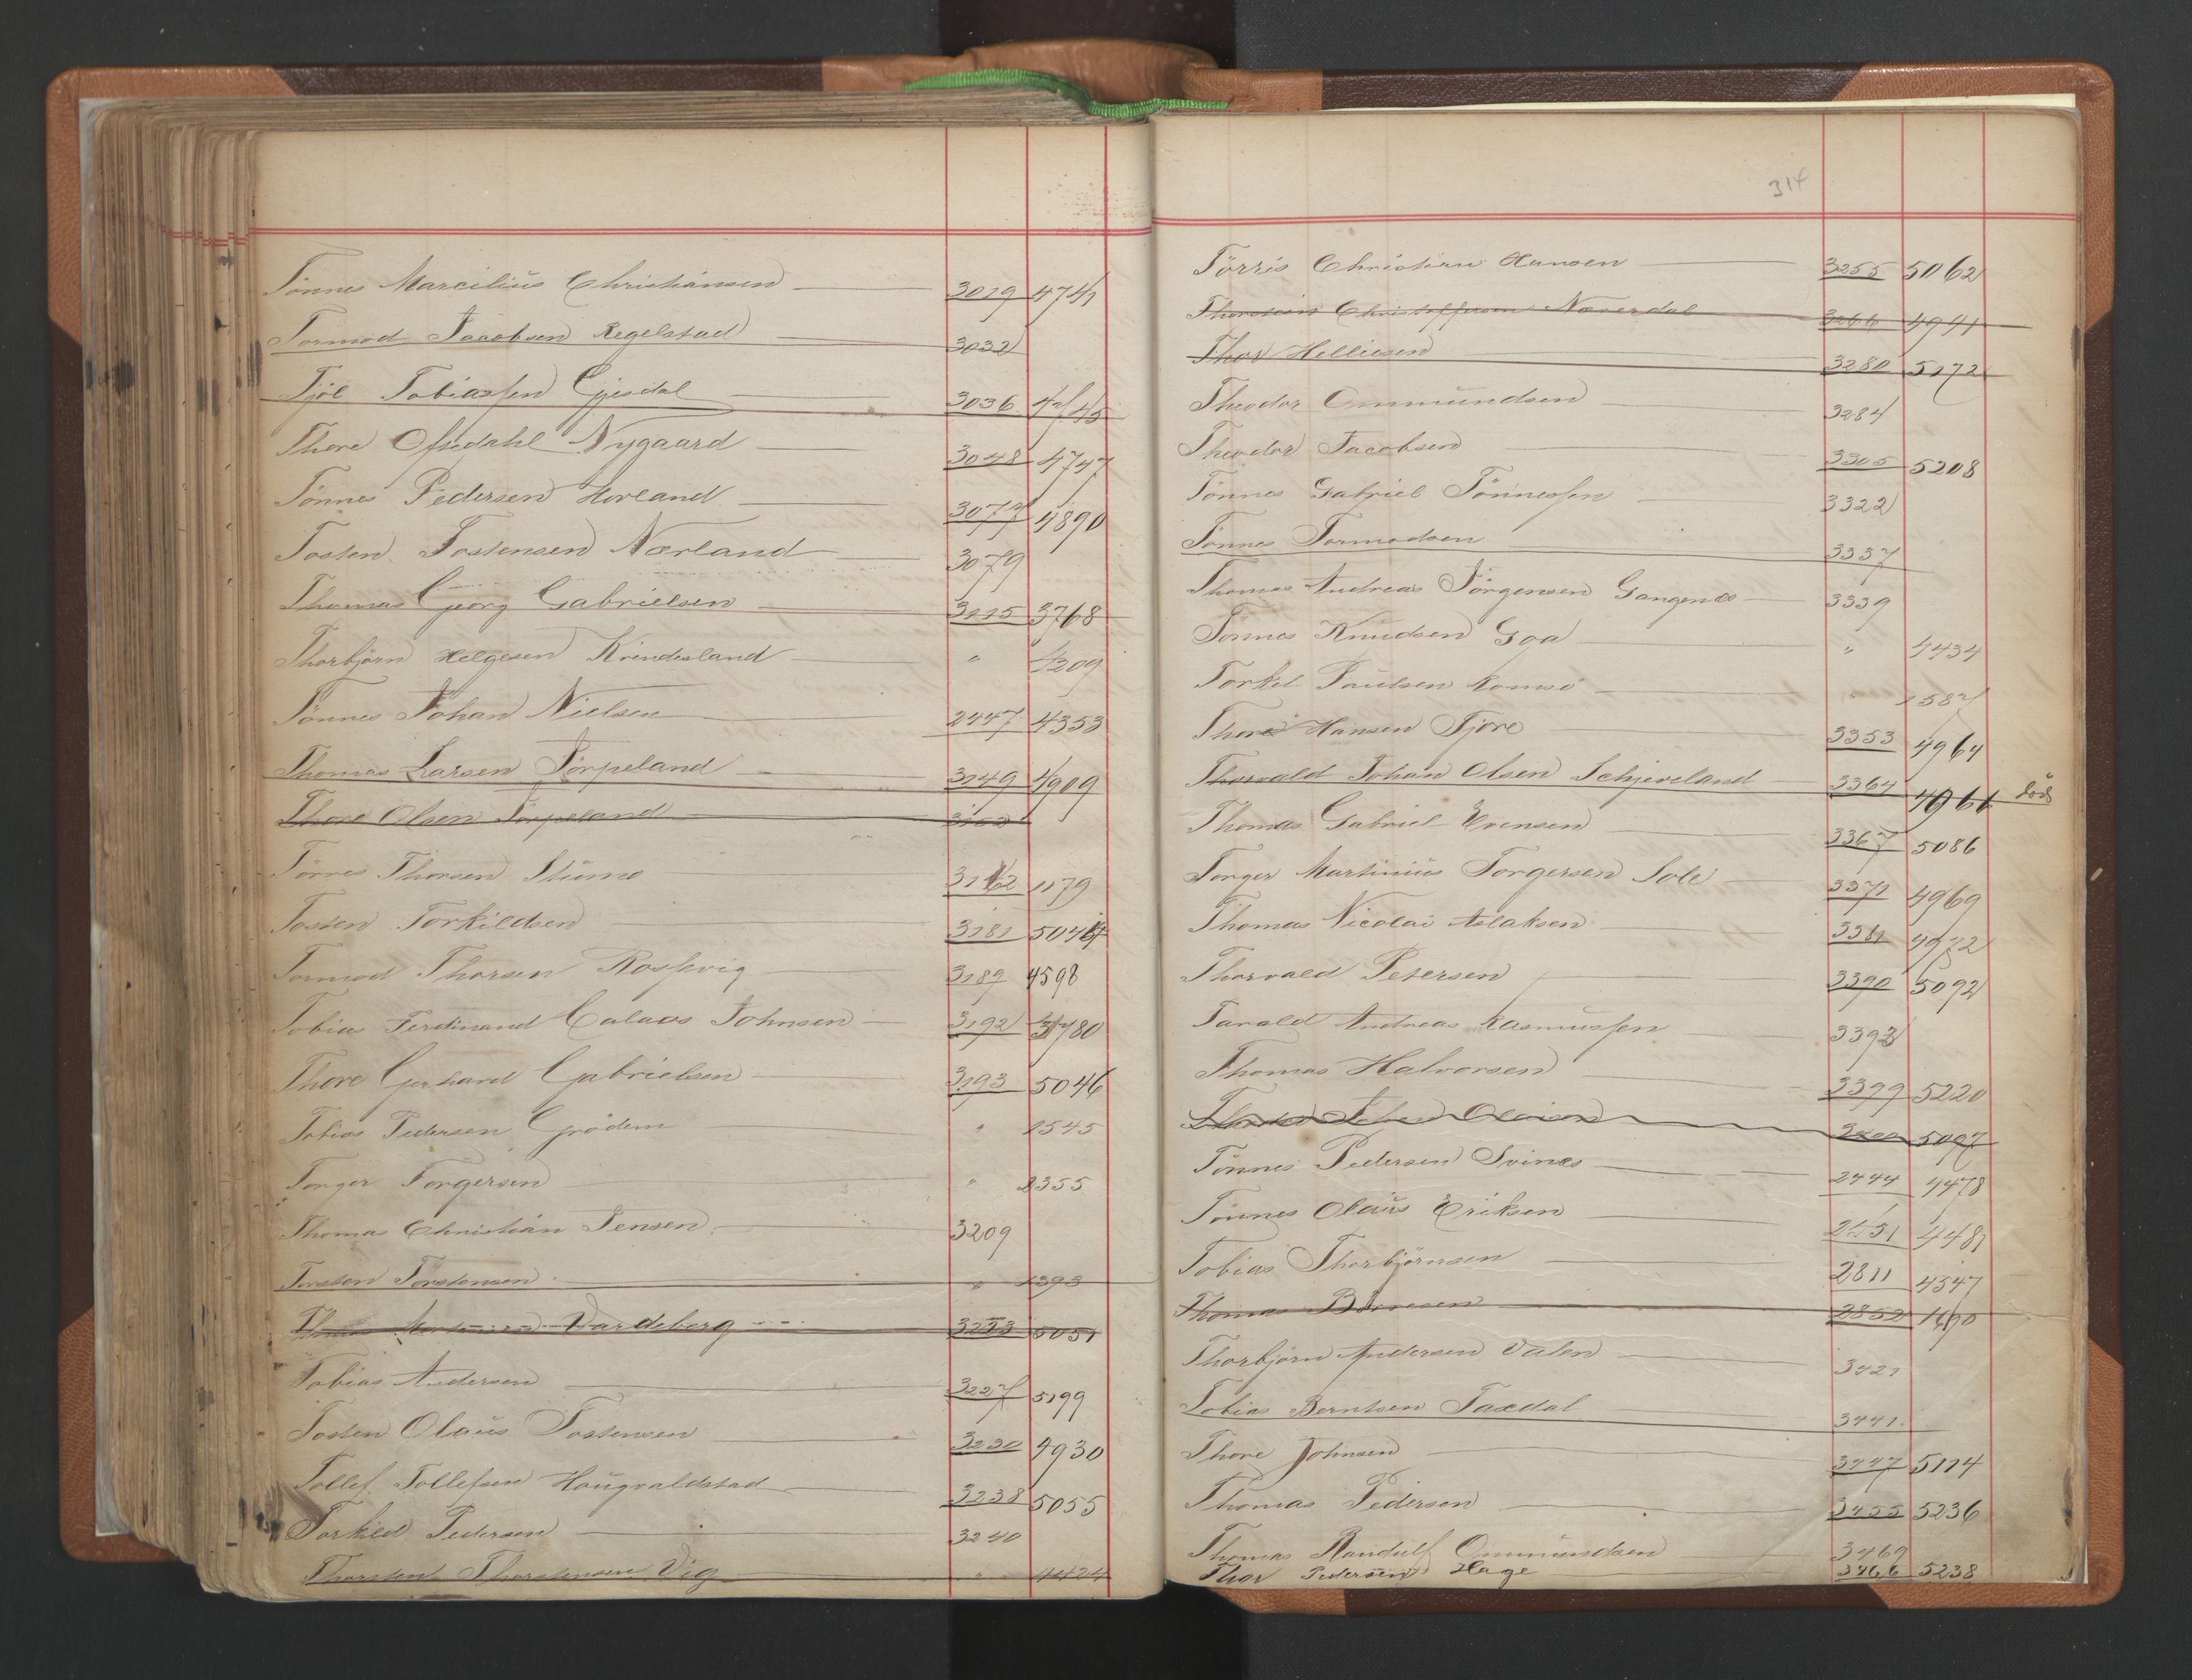 Tönnes Marcilius Christiansen 3019 4741
Tormod Jacobsen Regelstad 3032
Tjöl Tobiassen Gjesdal 3036 4745
Thore Ofsedahl Nygaard 3048 4747
Tönnes Pedersen Hovland 3077 4890
Tosten Tostensen Nærland 3079
Thomas Georg Gabrielsen 3115 3768
Thorbjörn Helgesen Krindesland " 1209
Tönnes Johan Nielsen 2447 4353
Thomas Larsen Törpeland 3149 4909
Thore Olsen Törpeland
Törres Thorsen Stumo 3162 1179
Tosten Torkildsen 3181
Tormod Thorsen Rossevig 3189 4598
Tobias Ferdinand Calaos Johnsen 3192
Thore Gerhard Gabrielsen 3193 5046
Tobias Pedersen Grödem " 1545
Torger Torgersen " 2355
Thomas Christian Jensen 3209
Torsten Torstensen " 1393
Vardeberg 3223 5051
Tobias Andersen 3227 5199
Tosten Olaus Tostensen 3230 4930
Tollef Tollefsen Hougvaldstad 3238 5055
Torkild Pedersen 3240
Thorsten Thorstensen Vig " 1424
314
Törris Christian Hansen 3255 5062
Thorstein Christoffersen Næverdal 3266 4941
Thor Helliesen 3280 5172
Theodor Ommundsen 3284
Theodor Jacobsen 3305 5208
Tönnes Gabriel Tönnessen 3322
Tönnes Tormodsen 3337
Thomas Andreas Jörgensen Gangenes 3339
Tönnes Knudsen Goa " 4434
Torkel Paulsen Romsö " 1587
Thore Hansen Tjöre 3353 4964
Thorvald Johan Olsen Schjeveland 3364 4966 död
Thomas Gabriel Evensen 3367 5086
Torger Martinius Torgersen Sole 3371 4969
Thomas Nicolai Aslaksen 3381 4972
Thorvald Petersen 3390 5092
Tarald Andreas Rasmussen 3393
Thomas Halvorsen 3399 5220
5097
Tönnes Pedersen Svines 2444 4478
Tönnes Olaus Eriksen 2451 4481
Tobias Thorbjörnsen 2811 4547
Thomas 2852 1690
Thorbjörn Andersen Valen 3421
Tobias Berntsen Taxdal 3441
Thore Johnsen 3447 5114
Thomas Pedersen 3455 5236
Thomas Randulf Ommundsen 3469
Thor Pedersen Hage 3466 5238